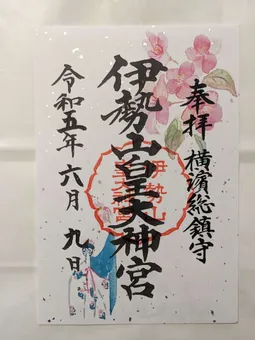 奉拝 横濱総鎮守
伊勢山皇大神宮
令和五年六月九日
伊勢山
皇大神宮